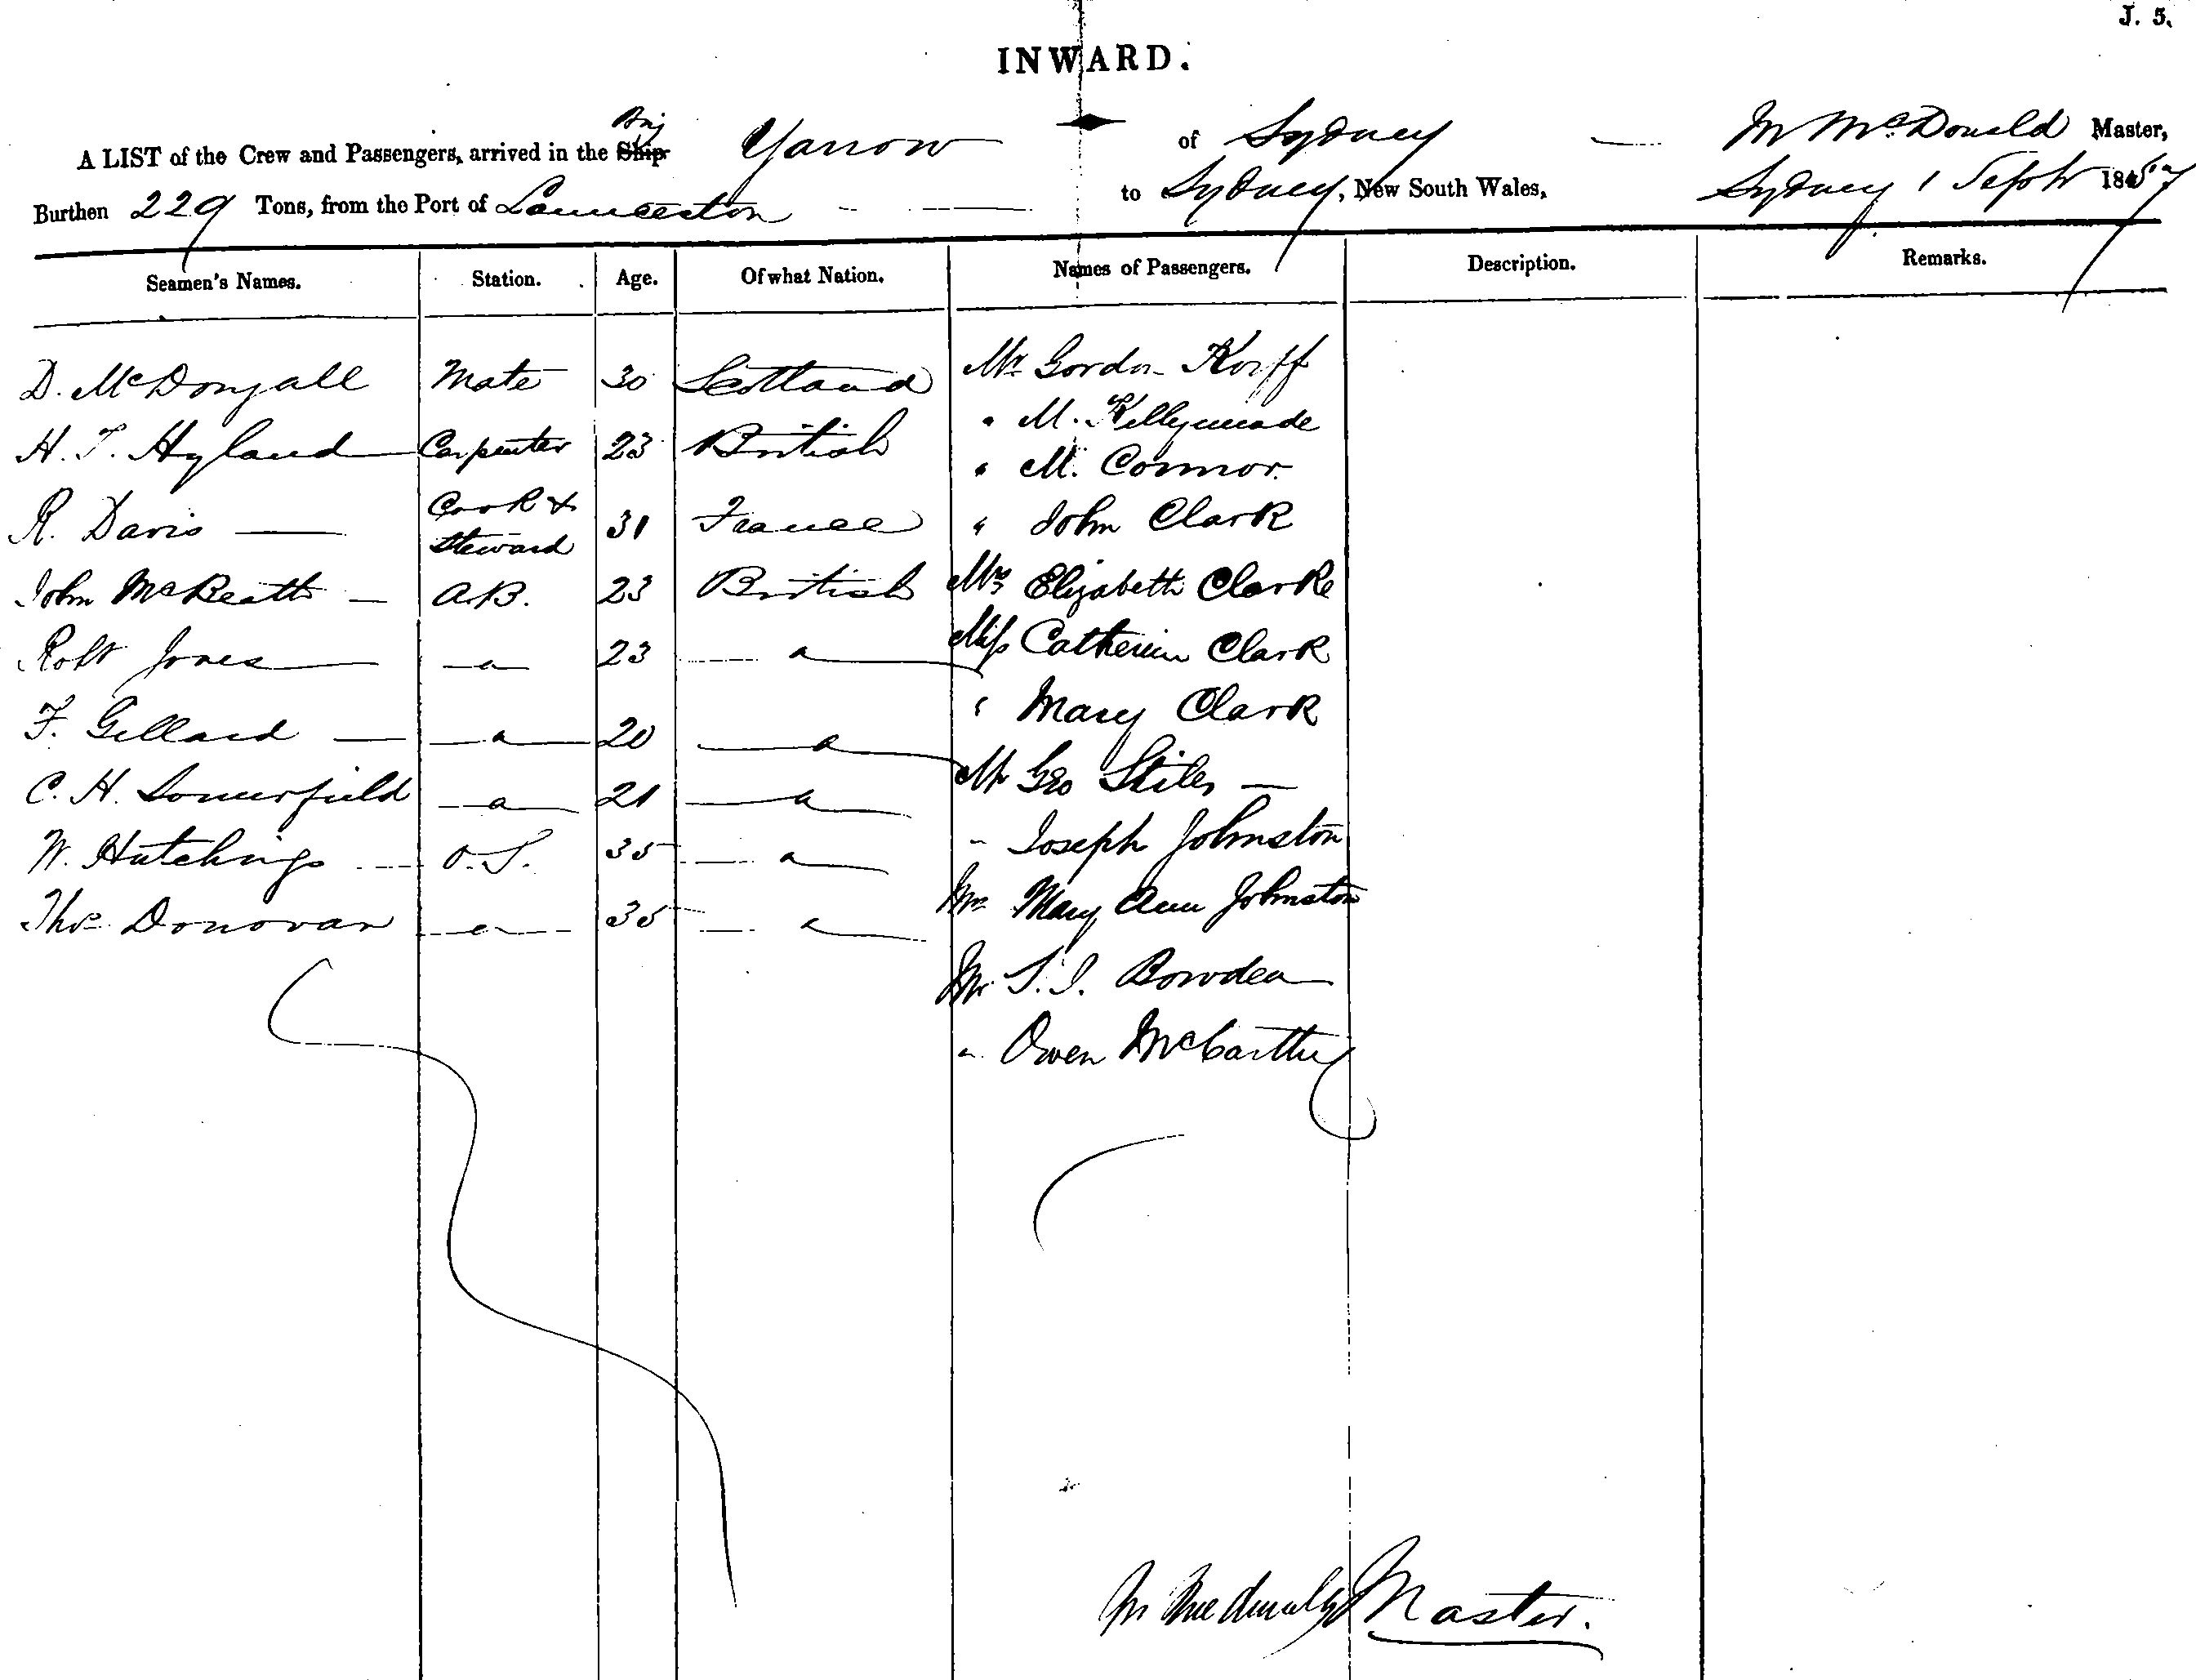 J. 5.
INWARD.
A LIST of the Crew and Passengers, arrived in the Ship Brig Yarrow of Sydney — M McDonald Master,
Burthen 229 Tons, from the Port of Launceston to Sydney, New South Wales, Sydney 1 Septr 1857
Seamen's Names. Station. Age. Of what Nation. Names of Passengers. Description. Remarks.
D. McDougall Mate 30 Scotland Mr Gordon Korff
H. T. Hyland Carpenter 23 British " M. Kellymeade
" M. Connor
R. Davis — Cook & Steward 31 France " John Clark
John McKeath — A.B. 23 British Mrs Elizabeth Clarke
Robt Jones — " 23 " Miss Catherin Clark
" Mary Clark
F. Gellard — " 20 " Mr Geo Stiles —
C. H. Somerfield " 21 "
W. Hutchings O.S. 35 " " Joseph Johnston
Thos Donovan " 35 " Mrs Mary Ann Johnston
Mr Bowden
" Owen McCarthy
M MacDonald Master.